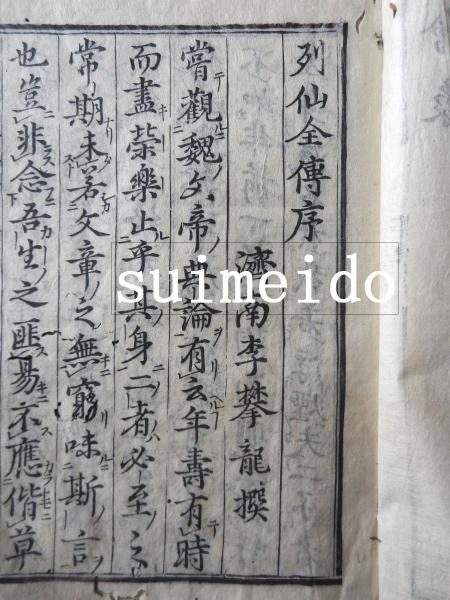 列仙全傳序
濟南李攀龍撰
嘗觀魏文帝典論有云年壽有時
而盡榮樂止乎其身二者必至之
常期未若文章之無窮味斯言
也豈非念吾生之匪易不應偕草
suimeido